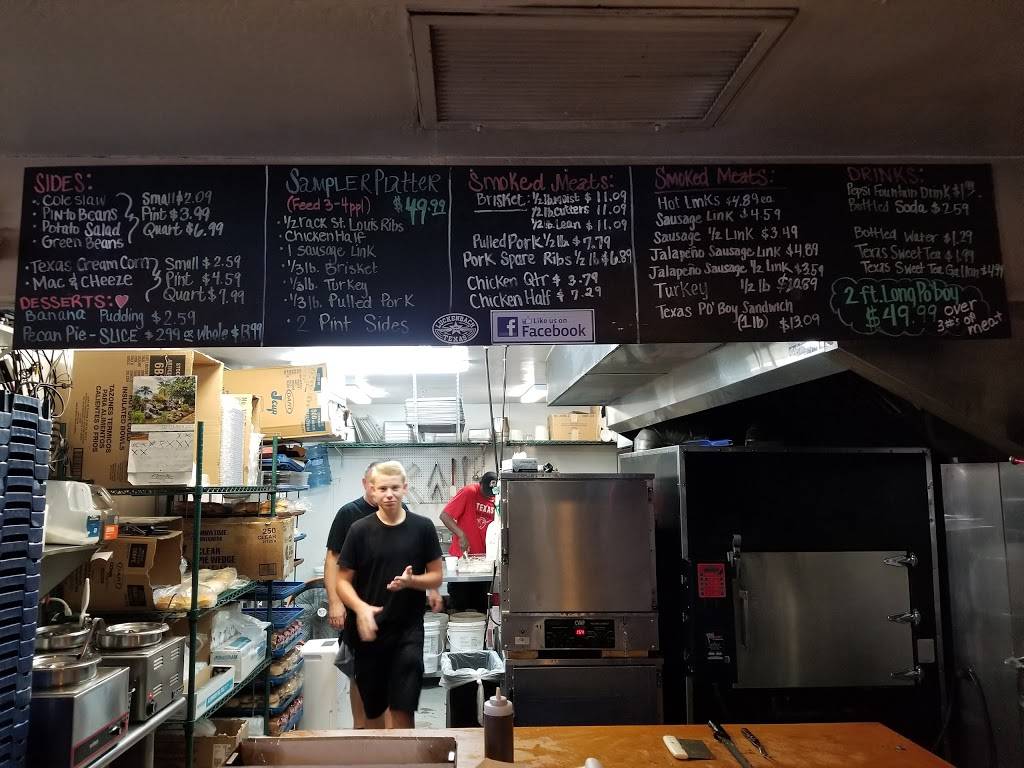 SIDES:
• Cole Slaw
• Pinto Beans
• Potato Salad
• Green Beans
Small $2.09
Pint $3.99
Quart $6.99
• Texas Cream Corn
• Mac & Cheeze
Small $2.59
Pint $4.59
Quart $7.99
DESSERTS: ♥
Banana Pudding $2.59
Pecan Pie - SLICE $2.99 or Whole $13.99
SAMPLER PLATTER
(Feed 3-4ppl) $49.99
• 1/2 rack St. Louis Ribs
• Chicken Half
• 1 Sausage Link
• 1/3 lb. Brisket
• 1/3 lb. Turkey
• 1/3 lb. Pulled Pork
• 2 Pint Sides
LUCKENBACH
TEXAS
Smoked Meats:
Brisket: 1/2 lb Moist $11.09
1/2 lb Cutters 11.09
1/2 lb Lean $11.09
Pulled Pork 1/2 lb $7.79
Pork Spare Ribs 1/2 lb $6.89
Chicken Qtr $3.79
Chicken Half $7.29
Like us on
Facebook
Smoked Meats:
Hot Links $4.89 ea
Sausage Link $4.59
Sausage 1/2 Link $3.49
Jalapeño Sausage Link $4.89
Jalapeño Sausage 1/2 Link $3.59
Turkey 1/2 lb $10.89
Texas Po' Boy Sandwich
(1 lb) $13.09
DRINKS:
Pepsi Fountain Drink
Bottled Soda $2.59
Bottled Water $1.29
Texas Sweet Tea $1.99
Texas Sweet Tea Gallon $4.99
2 ft. Long Po'boy
$49.99
over
3#'s of
meat
INSULATED BOWLS
TAZONES TERMICOS
PARA ALIMENTOS
CALIENTES O FRIOS
Dart
J cup
250
CLEAR
CLEAR
PIE WEDGE
TEXAS